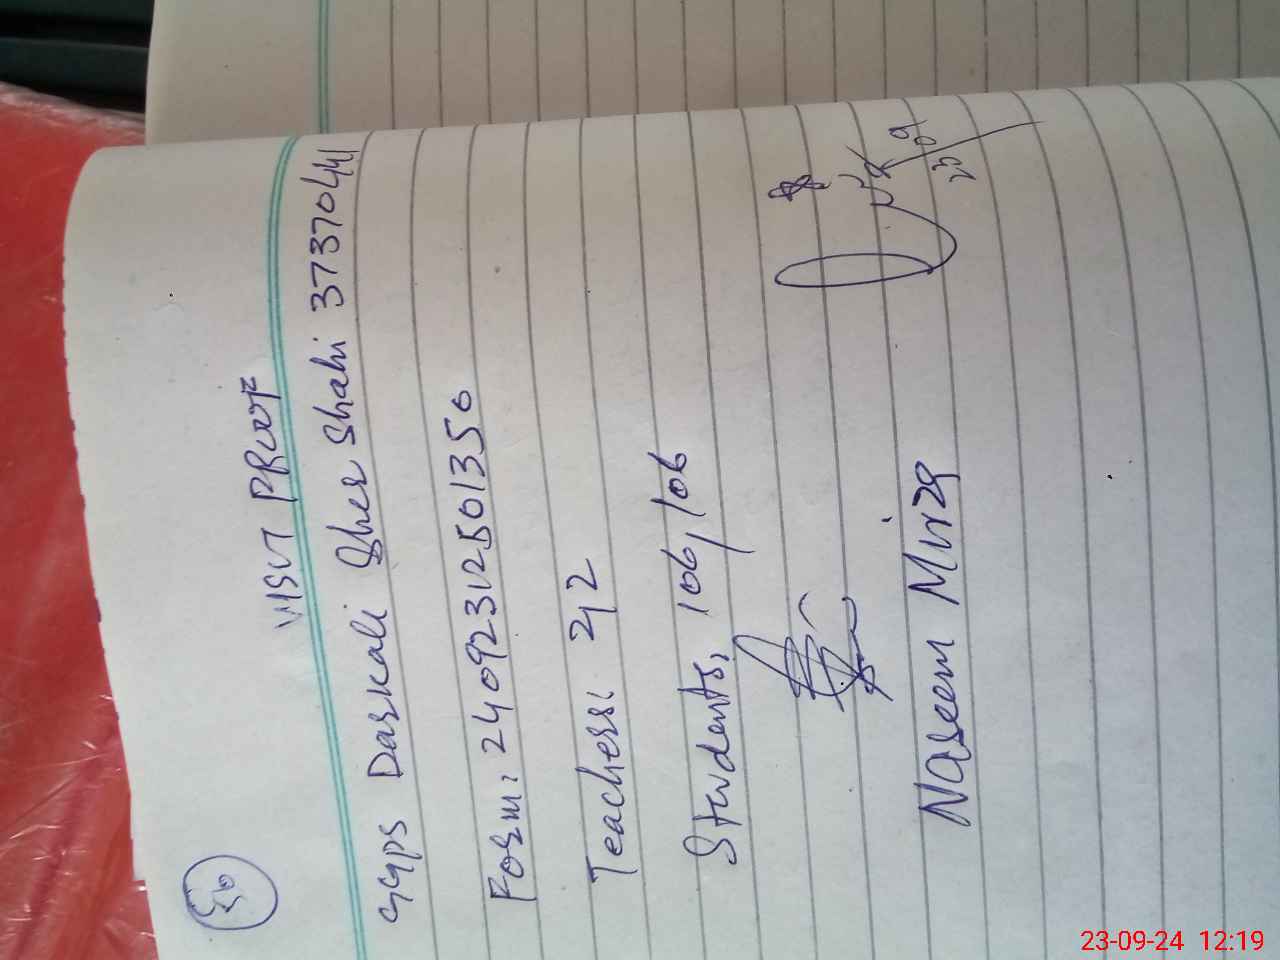 VISIT PROOF
GGPS Darkali Sher Shahi 37370441
Form: 24092312501350
Teachers: 2/2
Students, 106/106
Naseem Mirza
23-09-24 12:19